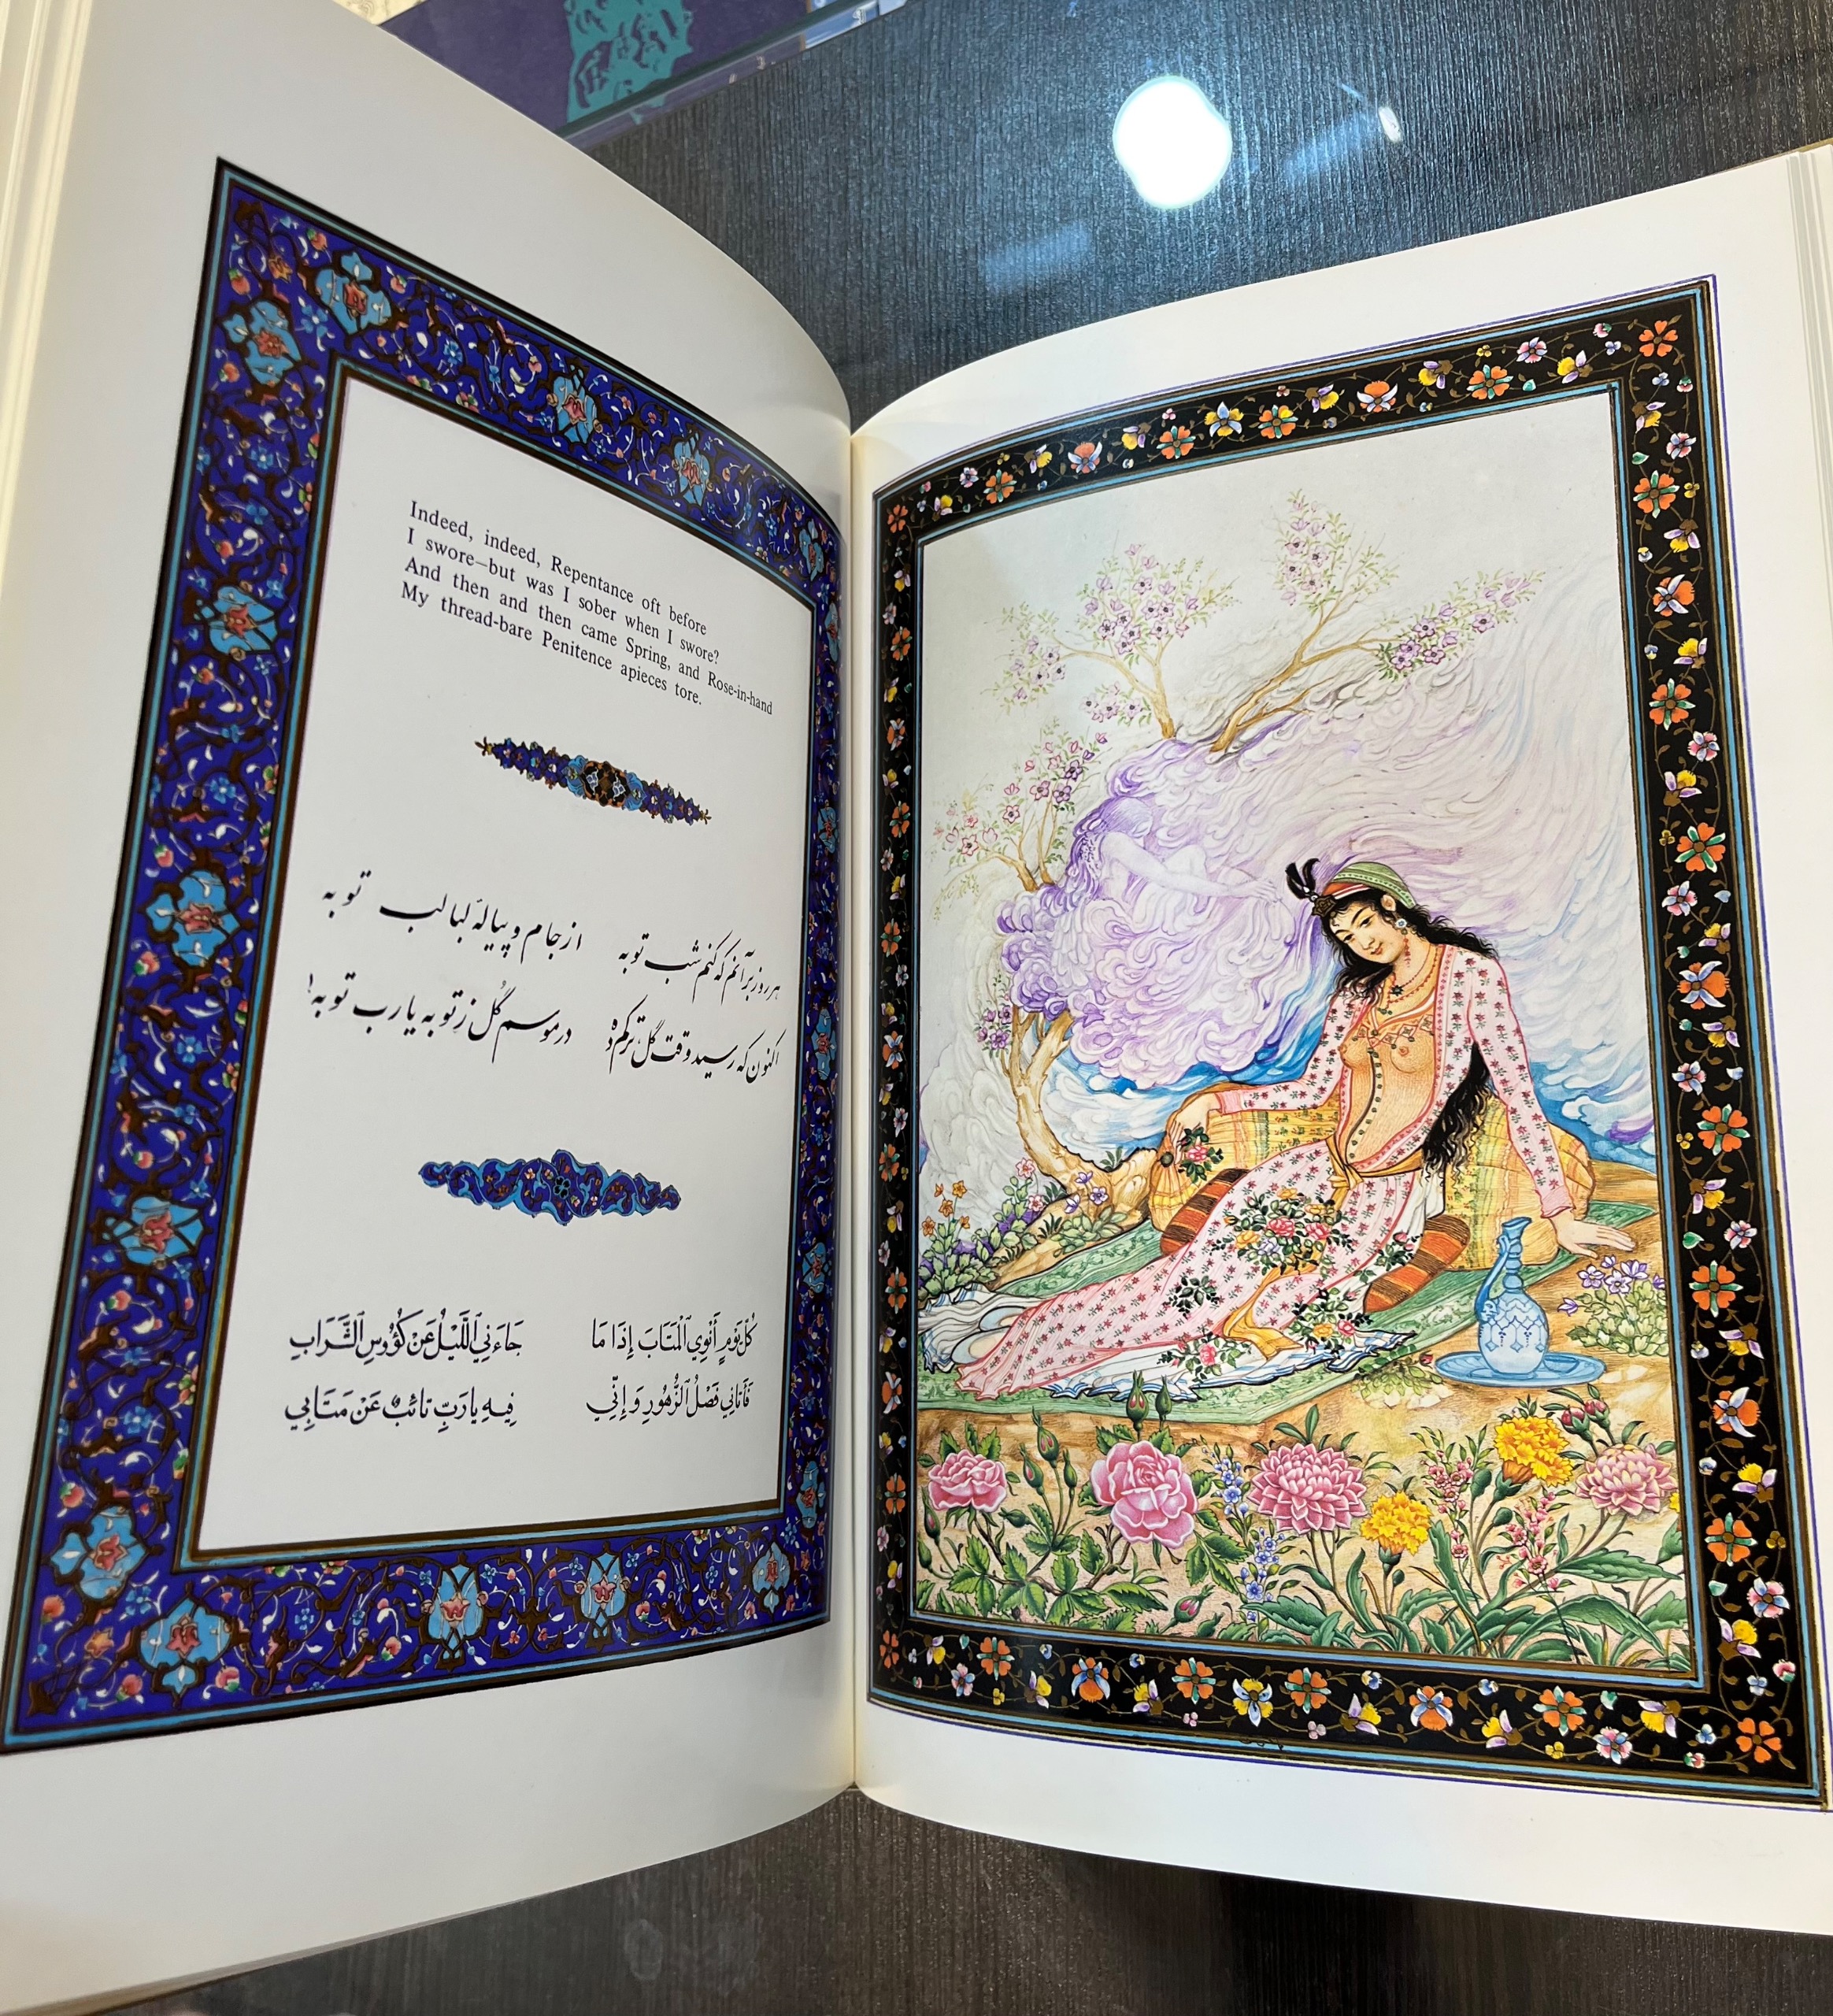 Indeed, indeed, Repentance oft before
I swore—but was I sober when I swore?
And then and then came Spring, and Rose-in-hand
My thread-bare Penitence apieces tore.
هر روز برآنم که کنم شب توبه از جام و پیالهٔ لبالب توبه
اکنون که رسید وقت گل ترکم ده در موسم گُل ز توبه یا رب توبه!
كُلَّ يَوْمٍ أَنْوِي ٱلْمَتَابَ إِذَا مَا جَاءَنِي ٱللَّيْلُ عَنْ كُؤُوسِ ٱلشَّرَابِ
فَأَتَانِي فَصْلُ ٱلزُّهُورِ وَإِنِّي فِيهِ يَا رَبِّ تائبٌ عَنْ مَتَابِي